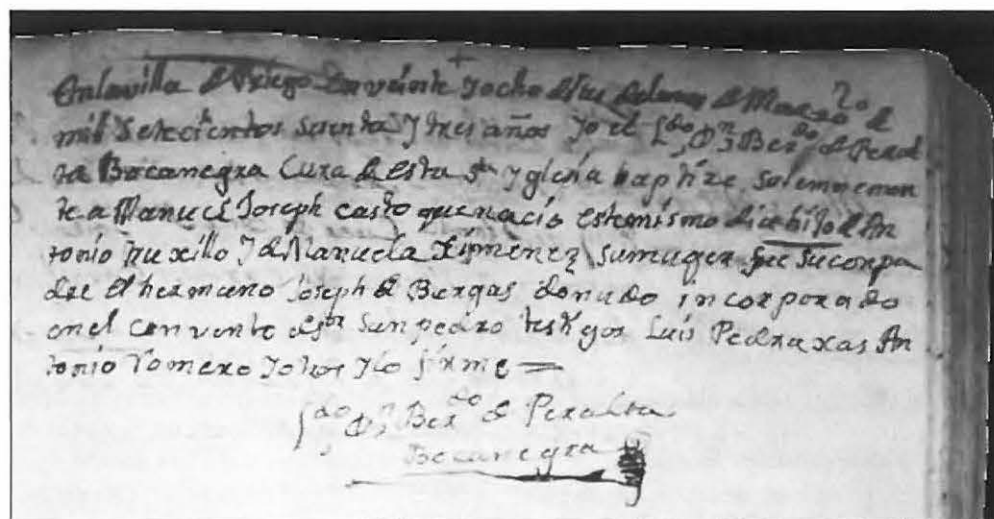 +
En la villa de Priego en veinte y ocho dias del mes de Marzo de
mil Setecientos sesenta y tres años Yo el Ldo Dn Berdo de Peral
ta Bocanegra Cura de esta Sta Yglesia baptize solemnemen
te a Manuel Joseph casto que nacio este mismo dia hijo de An
tonio truxillo Y de Manuela Ximenez su muger fue su conpa
dre el hermano Joseph de Bargas donado incorporado
en el convento de Sor San pedro testigos Luis Pedraxas An
tonio Romero Y otros Y lo firme =
Ldo Dn Berdo de Peralta
Bocanegra